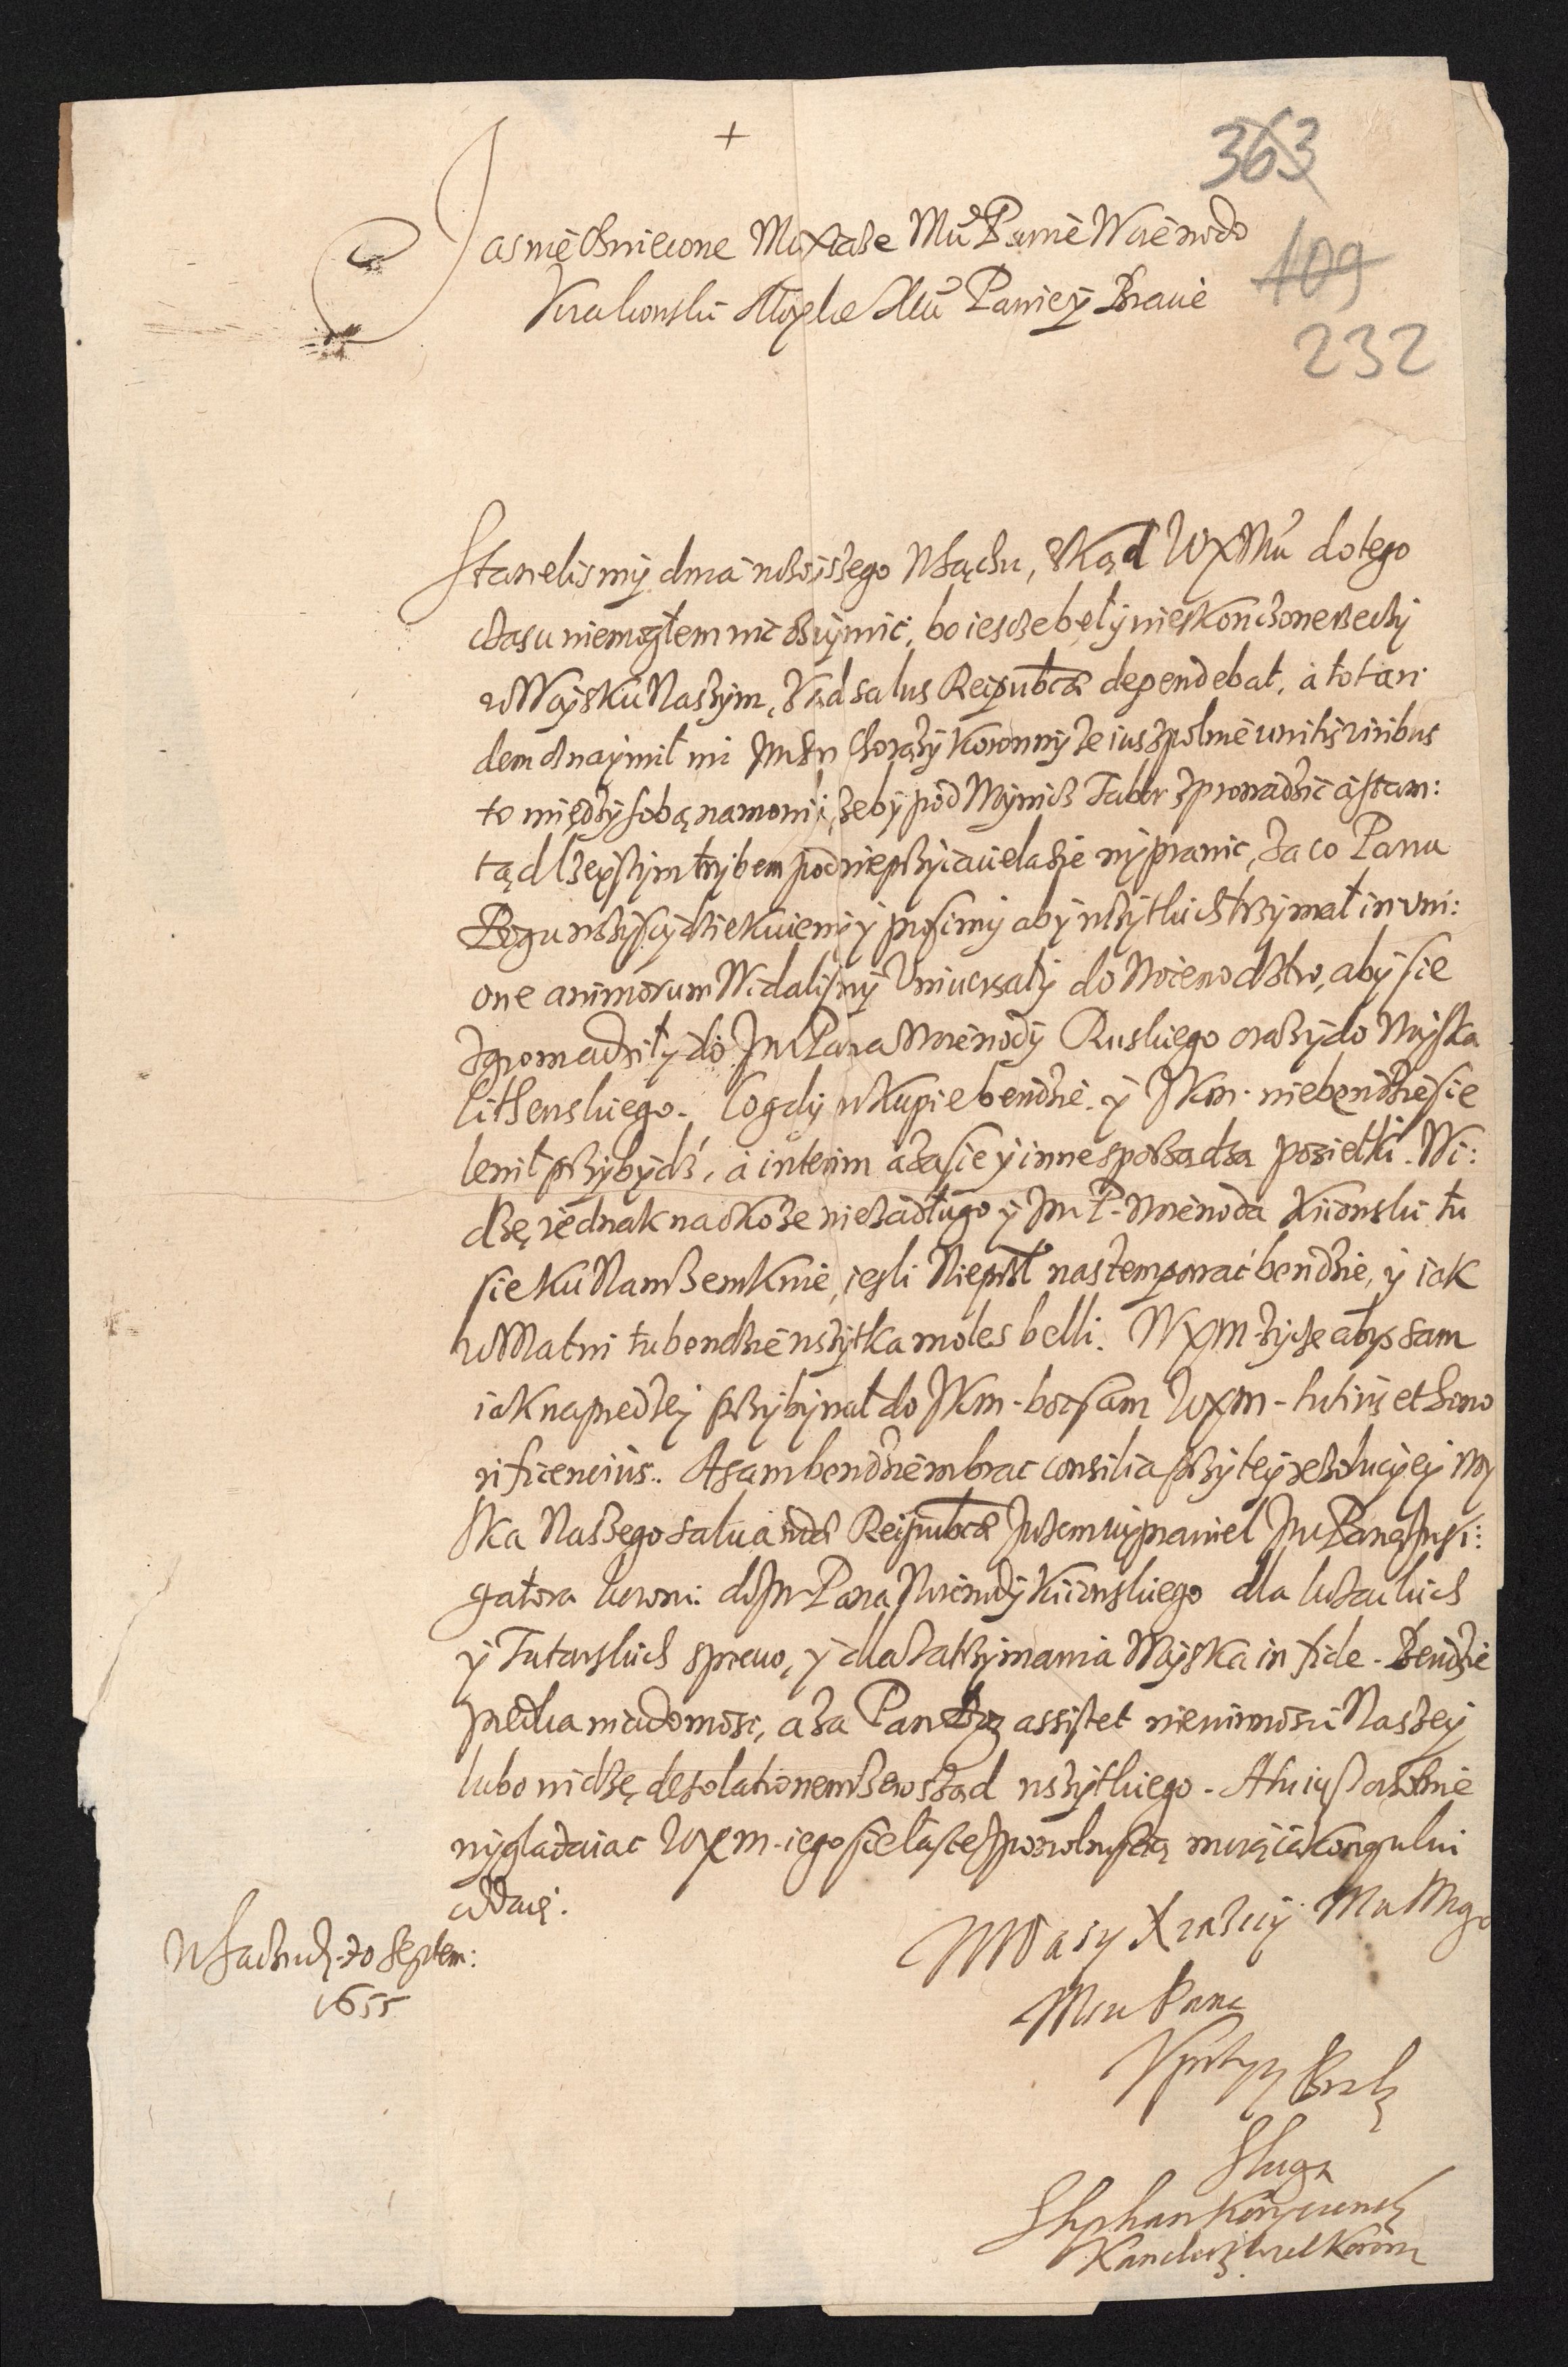 +
363
Jasnie Oswiecone Mci Xiaże Mci Panie Woiewodo
109
Krakowski Moy Mci Panie y Bracie
232
Stanelismy dnia wczoiszego w Sączu, skąd WXMci do tego
czasu niemogłem nic oznymic, bo iescze beły nieskonczone rzeczy
w Woysku Naszym, skąd salus Reipublicæ dependebat, a to tan
dem oznaymił mi Jm Pan Chorąży Koronny że iusz społnie unitis viribus
to między sobą namowili, żeby pod Wisnicz Tabor zprowadzic a stam:
tąd lzeyszym trybem pod nieprzyiaciela się wyprawic, za co Panu
Bogu wszyscy dziekuiemy y prosimy aby wszytkich trzymał in uni:
one animorum Wydalismy Uniuersały do Woiewodztw, aby sie
zgromadziły do Jm Pana Woiewody Ruskiego oraz y do Woyska
Lithewskiego. Co gdy w kupie bendzie y JKm. niebendzie sie
lenił przybydź, a interim aza sie y inne sporządza posiełki. Wi:
dzę iednak na oko że niezadługo y Jm P. Woiewoda Kiiowski tu
sie ku Nam zemknie, iesli Nieprzl nastempowac bendzie, y iak
w Matni tu bendzie wszytka moles belli. WXM życzę abys sam
iak napredzey przybywał do JKm. bo y sam WXM. tutius et hono
rificencius. A sam bendziem brac consilia przy tey rezolucyey Woy
ska Naszego saluandæ Reipublicæ Juzem wyprawiel Jm Pana Insti:
gatora koron: do Jm Pana Woiewody Kiiowskiego dla kozackich
y Tatarskich spraw, y dla zatrzymania Woyska in fide. Bendzie
predka wiadomosc, aza Pan Bog assistet niewinnosci Naszey
lubo widzę desolationem ze wsząd wszytkiego. A tu iusz osobnie
wyglądaiac WXM. iego sie łasce z powolnoscią moią iako naypilni
oddaię.
w Sączu d. 20 Septem:
1655
WMosci Xiazecy Mci Mego
Mci Pana
Uprzeymy Brat y
Sługa
Stephan Korycinsky
Kanclerz Wiel Koron